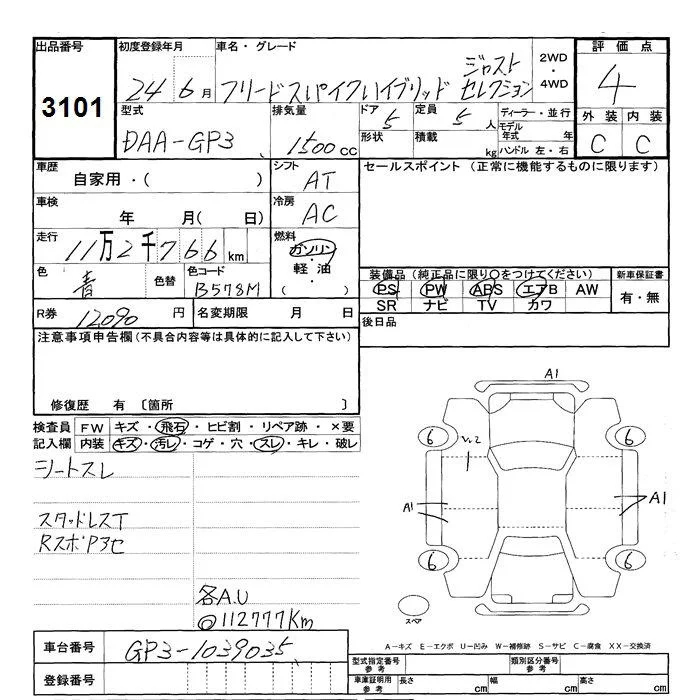 出品番号 初度登録年月 車名・グレード 2WD・4WD 評価点
3101 24年6月 フリードスパイクハイブリッド ジャストセレクション 4
型式 排気量 ドア 5 定員 5人 ディーラー・並行 外装 内装
DAA-GP3 1500cc 形状 積載 kg モデル年式 年 ハンドル 左・右 C C
車歴 シフト セールスポイント (正常に機能するものに限ります)
自家用・( ) AT
車検 冷房
年 月( 日) AC
走行 燃料
11万2千766km ガソリン・軽油・( )
色 色替 色コード 装備品 (純正品に限り○をつけてください) 新車保証書
青 B578M PS PW ABS エアB AW 有・無
SR ナビ TV カワ
R券 12090円 名変期限 月 日 後日品
注意事項申告欄 (不具合内容等は具体的に記入して下さい)
修復歴 有 〔箇所 〕
検査員 FW キズ・飛石・ヒビ割・リペア跡・×要
記入欄 内装 キズ・汚レ・コゲ・穴・スレ・キレ・破レ
シートスレ
スタッドレスT
RスポP3セ
各A.U
◎112777Km
A1
6 6
A1 A1
6 6
スペア
A-キズ E-エクボ U-凹み W-補修跡 S-サビ C-腐食 XX-交換済
車台番号 GP3-1039035 型式指定番号 参考 類別区分番号 参考
登録番号 車庫証明用 参考 長さ cm 幅 cm 高さ cm